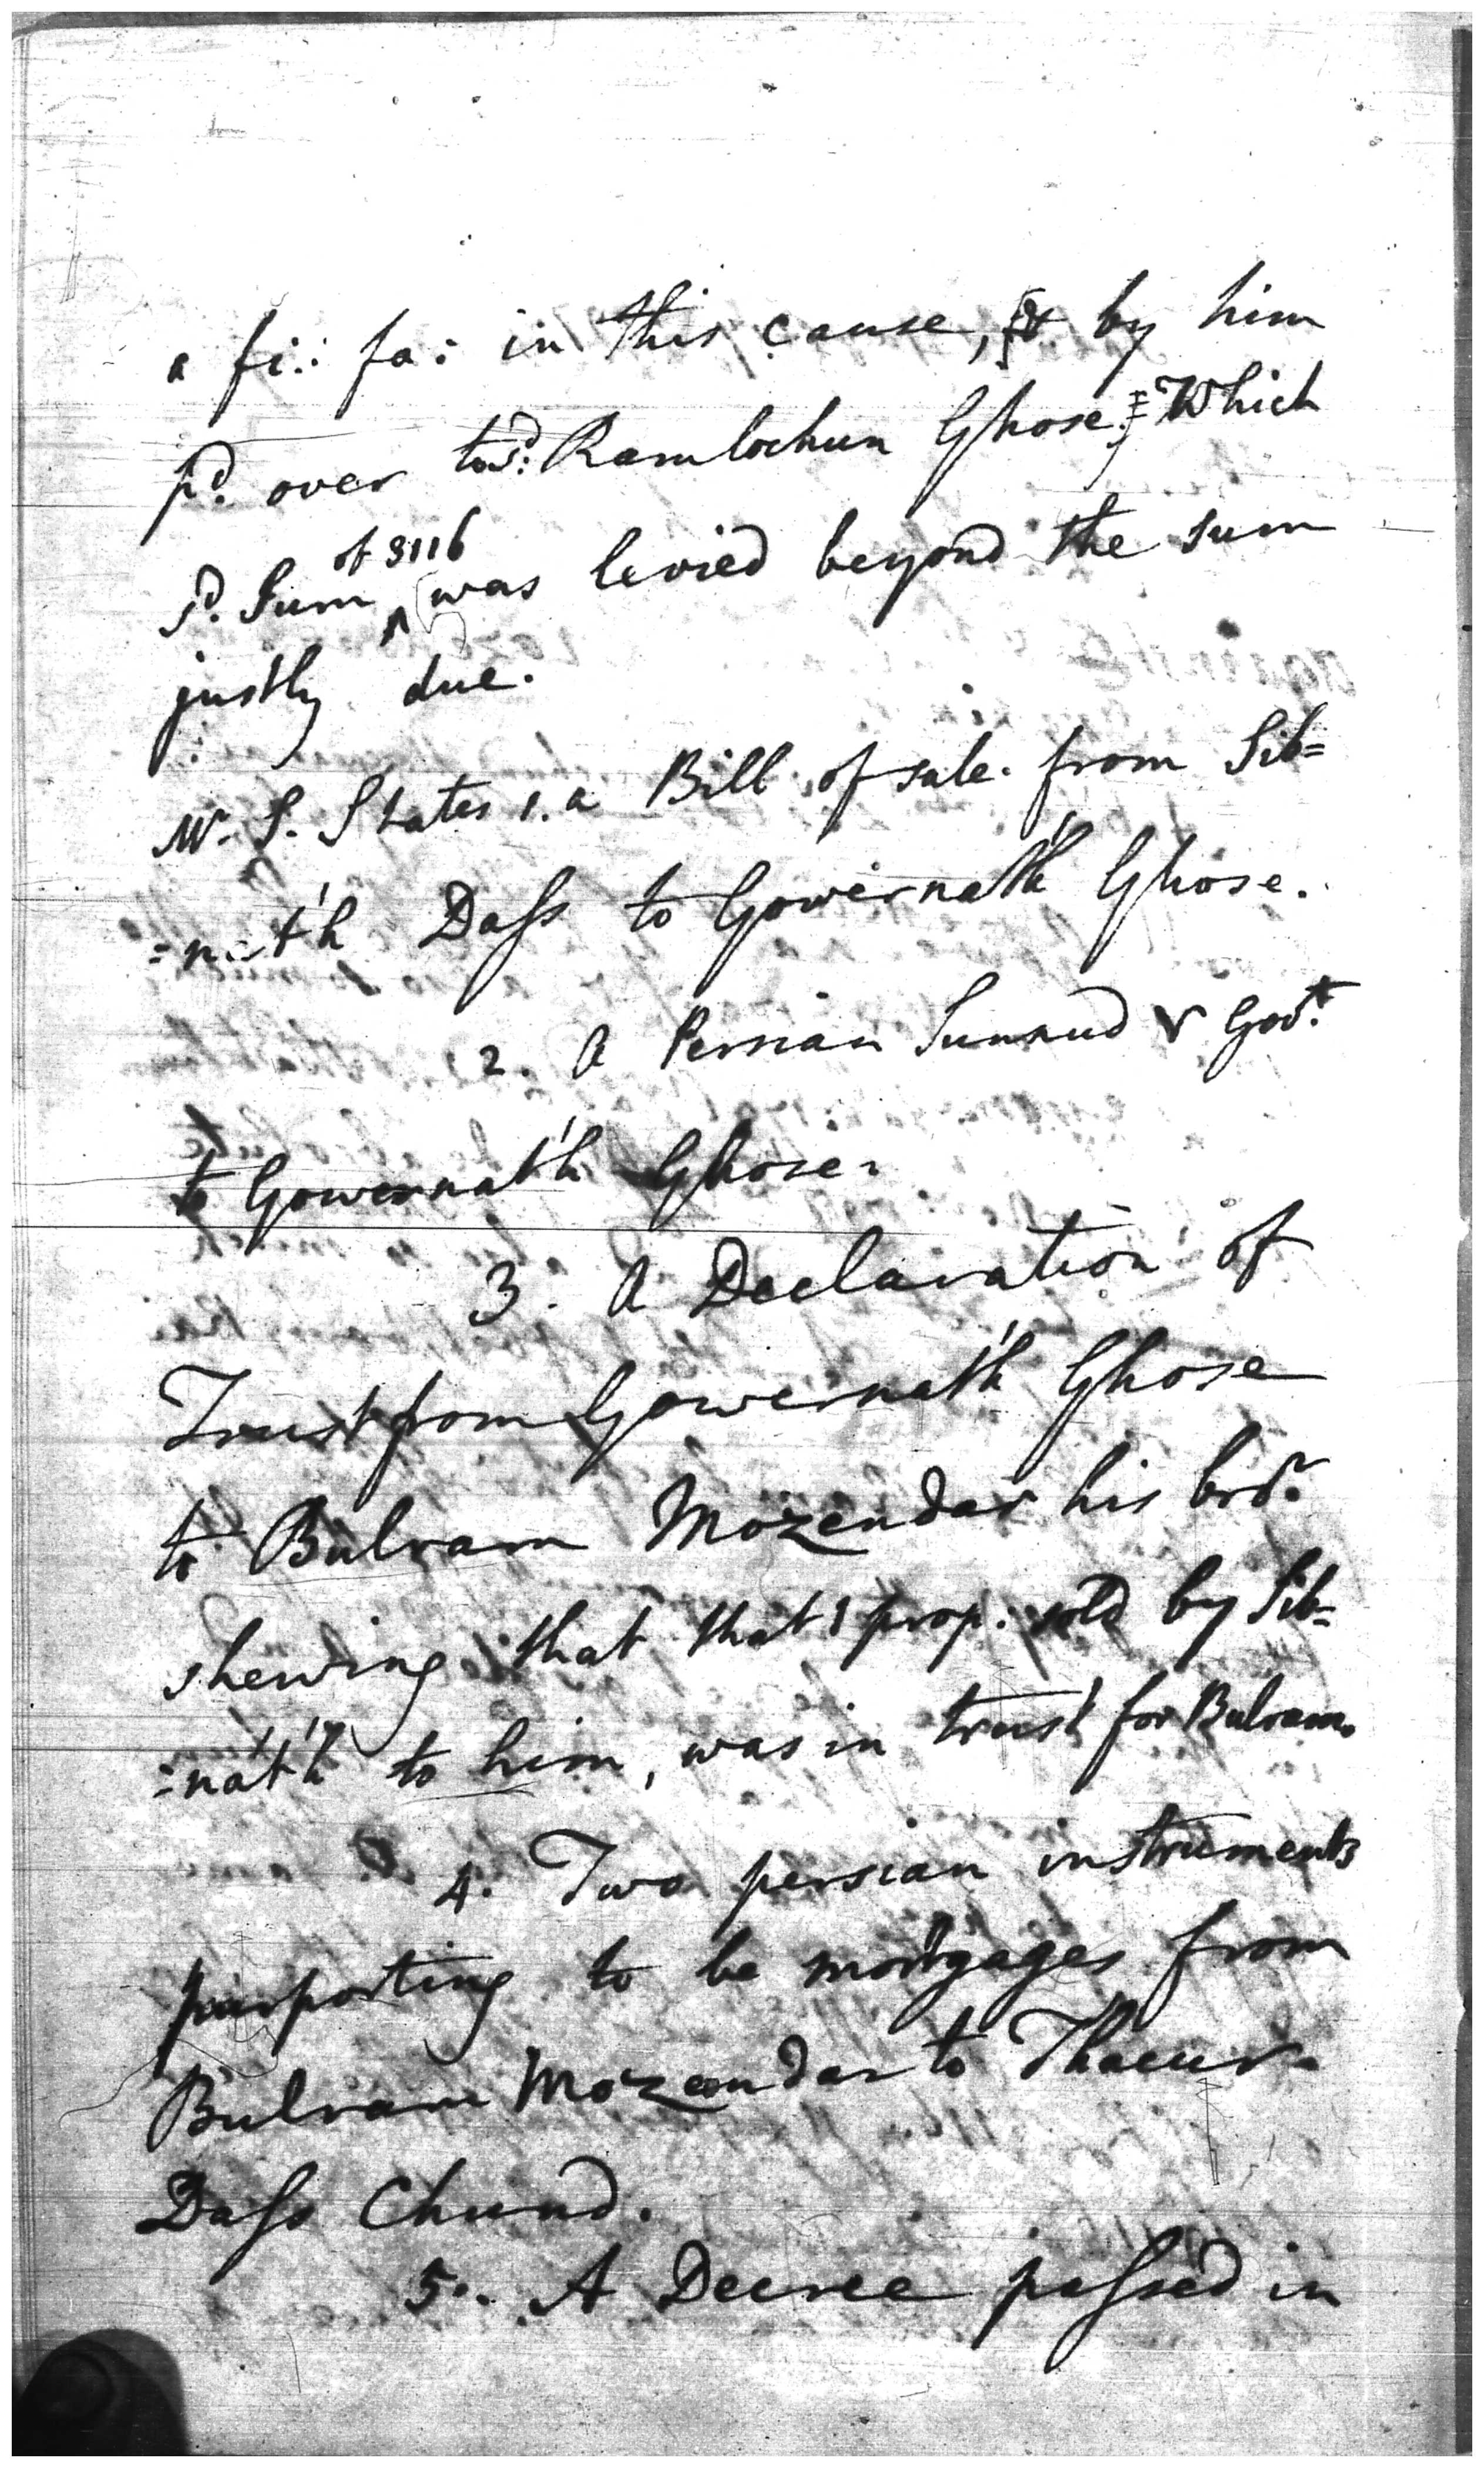 a fi: fa: in this cause, & by him
pd. over to sd. Ramlochun Ghose. Which
sd. Sum of 3116 was levied beyond the sum
justly due.
W. S. States 1. a Bill of sale from Sib=
=nat'h Dass to Gowernat'h Ghose.
2. A Persian Sunnud & Govt.
to Gowernat'h Ghose.
3. A Declaration of
Trust from Gowernat'h Ghose
to Bulram Mozendar his bror.
shewing that that prop. sold by Sib=
=nat'h to him, was in trust for Bulram.
4. Two persian instruments
purporting to be mortgages from
Bulram Mozendar to Thacur
Dass Chund.
5. A Decree passed in